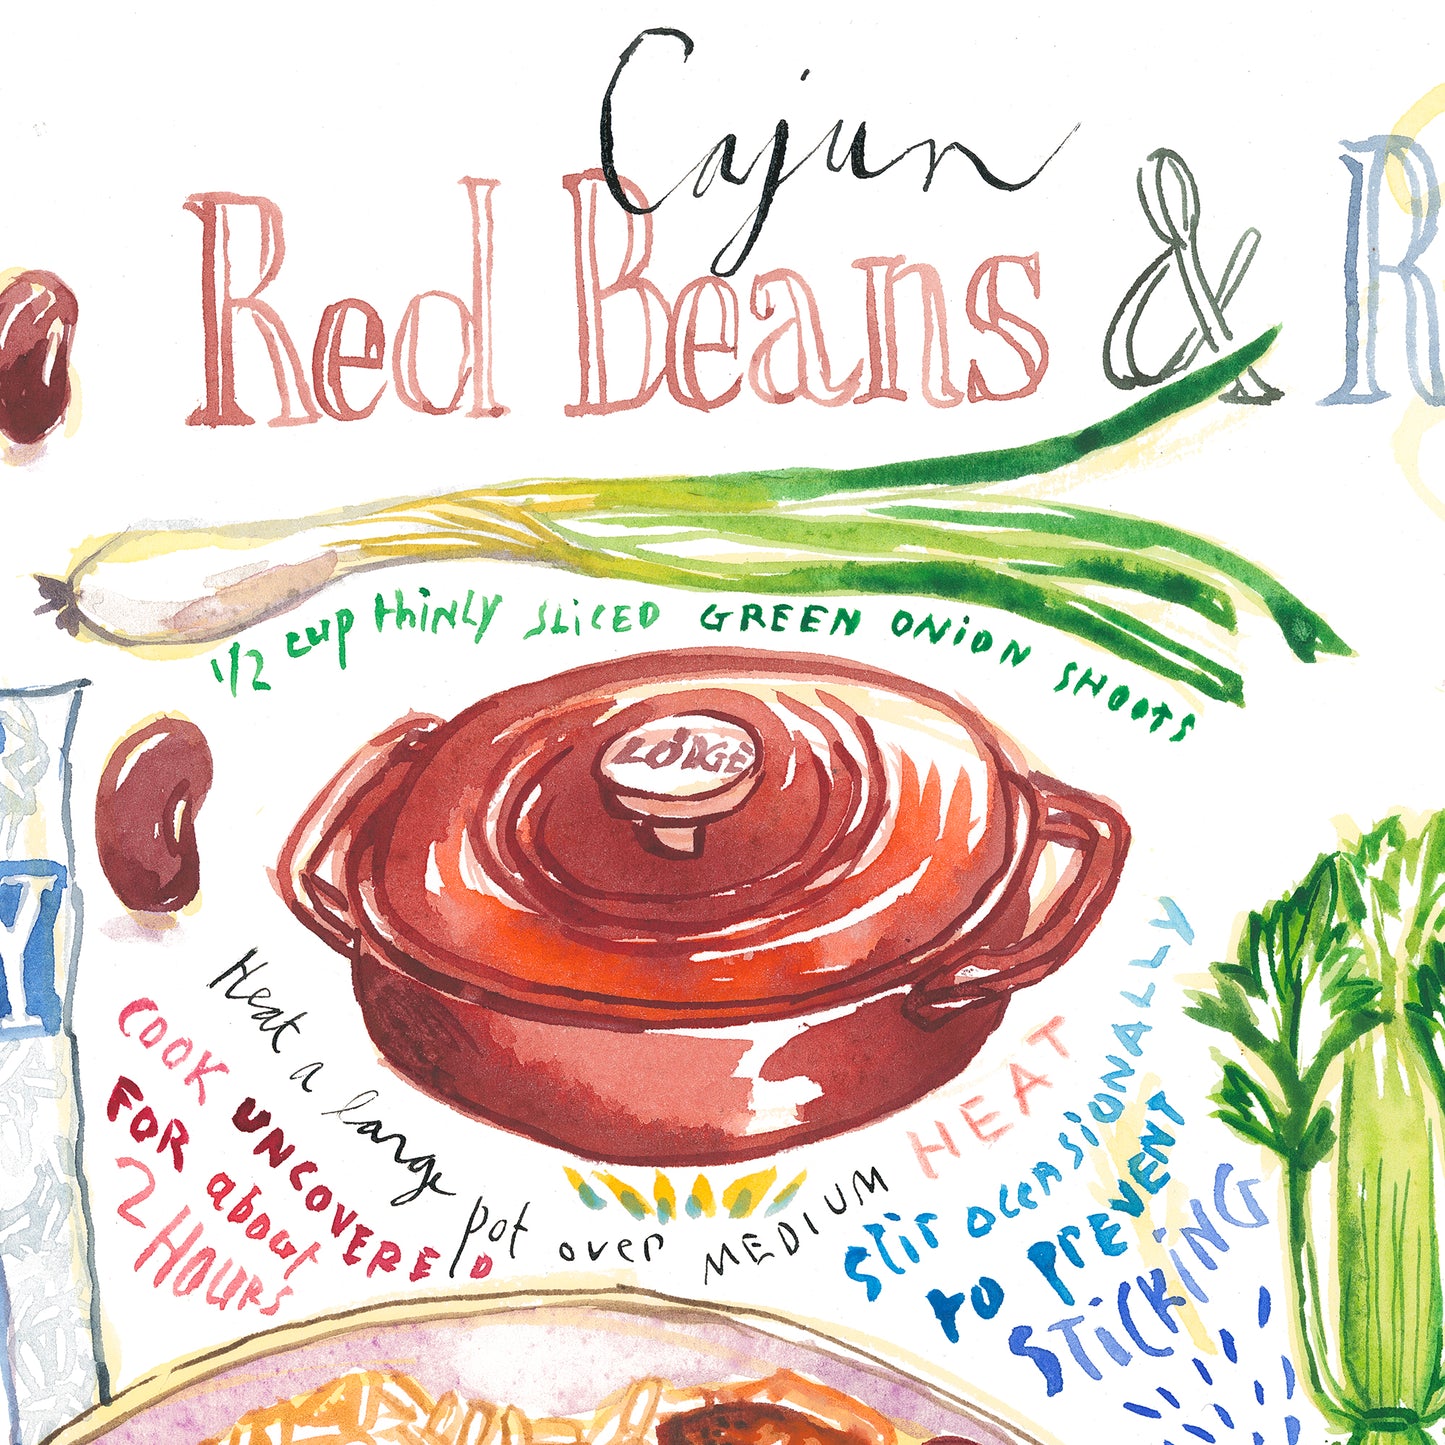 Cajun
Red Beans & R
1/2 cup thinly sliced GREEN ONION SHOOTS
LODGE
Y
Heat a large pot over MEDIUM HEAT
COOK UNCOVERED
FOR about
2 HOURS
Stir occasionally
to prevent
sticking